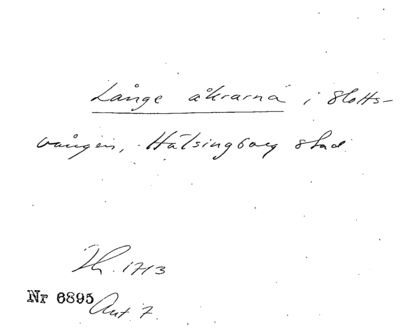 Långe åkrarna i Slotts-
vången, Hälsingborg stad.
Th. 1713
Nr 6895 Aut 7.